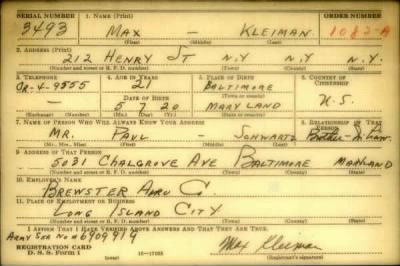 SERIAL NUMBER 1. NAME (Print) ORDER NUMBER
3493 MAX — KLEIMAN 1082-A
(First) (Middle) (Last)
2. ADDRESS (Print)
212 HENRY ST N.Y. N.Y.
(Number and street or R. F. D. number) (Town) (County) (State)
3. TELEPHONE 4. AGE IN YEARS 5. PLACE OF BIRTH 6. COUNTRY OF CITIZENSHIP
OR-4-9555 21 BALTIMORE
DATE OF BIRTH (Town or county)
— 5 7 20 MARYLAND U.S.
(Exchange) (Number) (Mo.) (Day) (Yr.) (State or country)
7. NAME OF PERSON WHO WILL ALWAYS KNOW YOUR ADDRESS 8. RELATIONSHIP OF THAT PERSON
MR. PAUL — SCHWARTZ Brother In Law
(Mr., Mrs., Miss) (First) (Middle) (Last)
9. ADDRESS OF THAT PERSON
5031 CHALGROVE AVE BALTIMORE MARYLAND
(Number and street or R. F. D. number) (Town) (County) (State)
10. EMPLOYER'S NAME
BREWSTER AERO
11. PLACE OF EMPLOYMENT OR BUSINESS
LONG ISLAND CITY
(Number and street or R. F. D. number) (Town) (County) (State)
I AFFIRM THAT I HAVE VERIFIED ABOVE ANSWERS AND THAT THEY ARE TRUE.
ARMY SER NO # 6909919
REGISTRATION CARD
D. S. S. Form 1 Max Kleiman
(Registrant's signature)